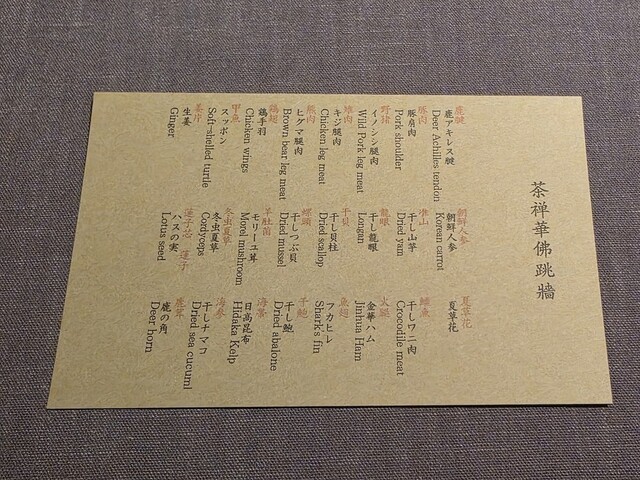 茶禅華佛跳牆
鹿腱
鹿アキレス腱
Deer Achilles tendon
豚肉
豚肩肉
Pork shoulder
野猪
イノシシ腿肉
Wild Pork leg meat
雉肉
キジ腿肉
Chicken leg meat
熊肉
ヒグマ腿肉
Brown bear leg meat
鶏翅
鶏手羽
Chicken wings
甲魚
スッポン
Soft-shelled turtle
姜片
生姜
Ginger
朝鮮人参
朝鮮人参
Korean carrot
淮山
干し山芋
Dried yam
龍眼
干し龍眼
Longan
干貝
干し貝柱
Dried scallop
螺頭
干しつぶ貝
Dried mussel
羊肚菌
モリーユ茸
Morel mushroom
冬虫夏草
冬虫夏草
Cordyceps
蓮子心・蓮子
ハスの実
Lotus seed
夏草花
夏草花
鰐魚
干しワニ肉
Crocodile meat
火腿
金華ハム
Jinhua Ham
魚翅
フカヒレ
Shark's fin
干鮑
干し鮑
Dried abalone
日高昆布
Hidaka Kelp
海参
干しナマコ
Dried sea cucuml
鹿茸
鹿の角
Deer horn